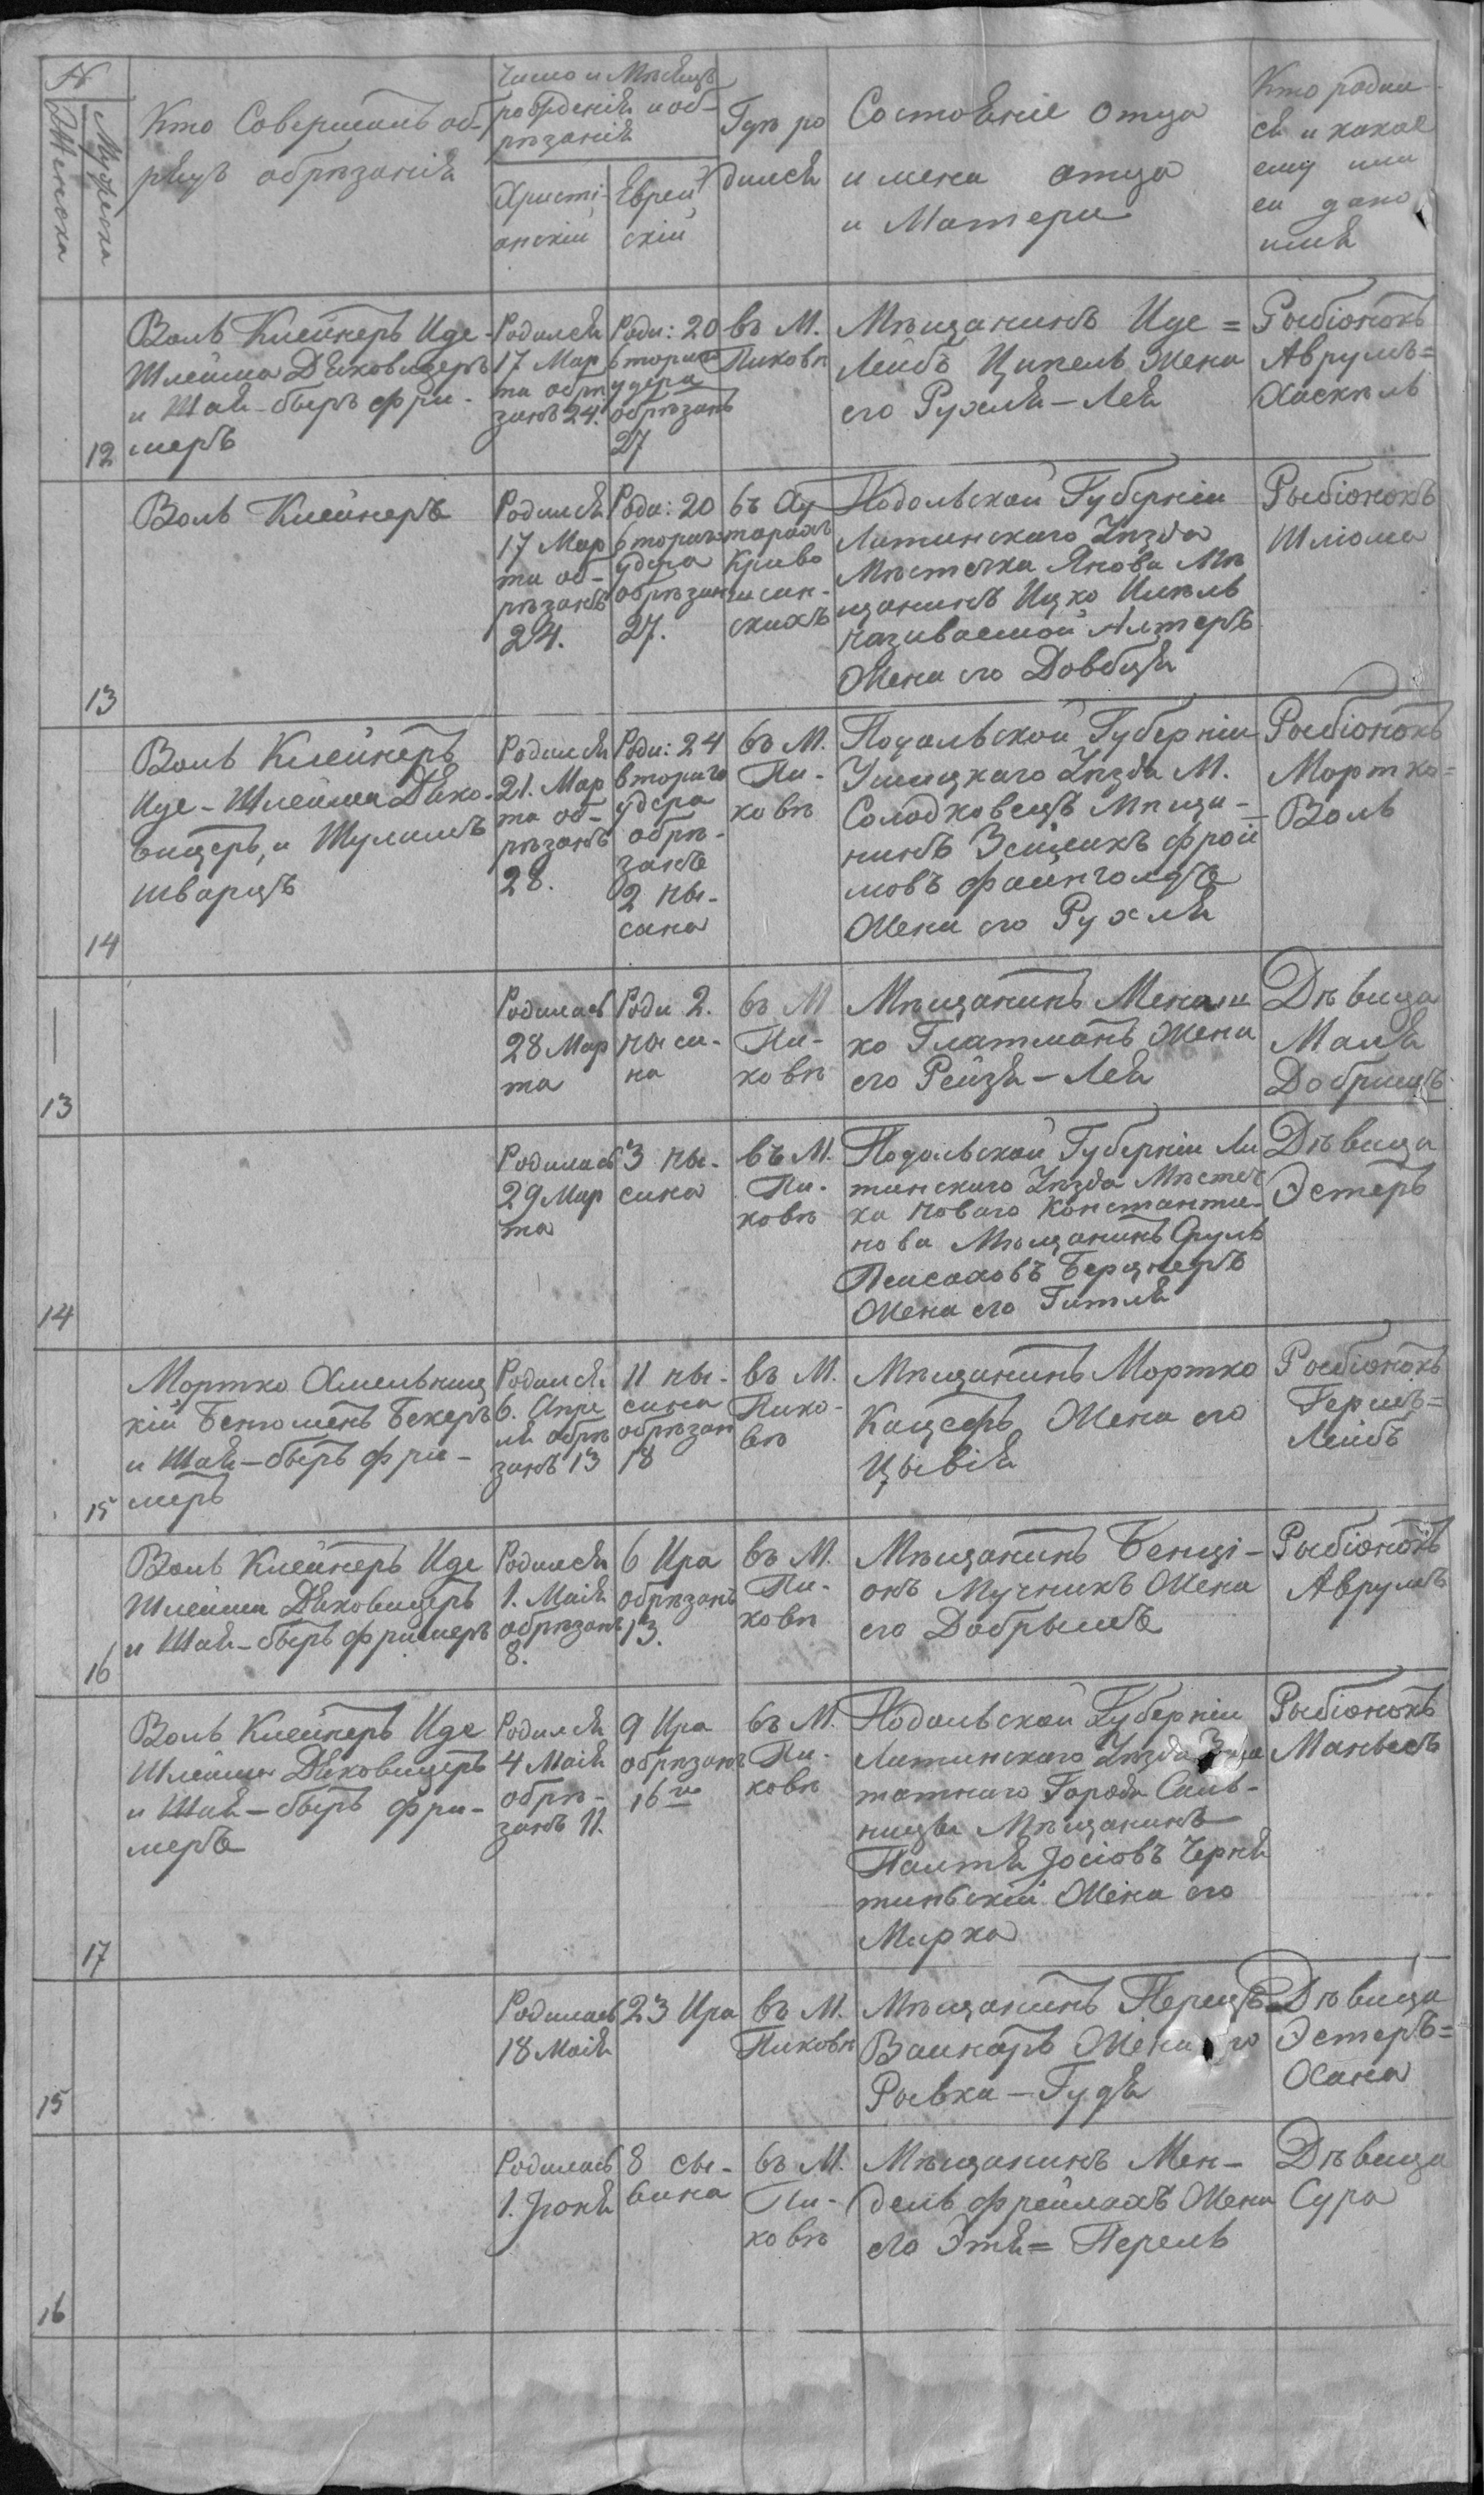 №
Женска
Мужеска
Кто Совершалъ об-
рядъ обрѣзанія
Число и Мѣсяцъ
рожденія и об-
рѣзанія
Христі-
анскій
Еврей
скій
Гдѣ ро
дился
Состояніе отца
имена отца
и Матери
Кто родил-
ся и какое
ему или
ей дано
имя
12
Воль Клейнеръ Иде-
Шлейма Дяковицеръ
и Шая-беръ фри-
меръ
Родился
17 Мар
та обрѣ
занъ 24.
Роди: 20
втораго
удера
обрѣзанъ
27
въ М.
Пиковѣ
Мѣщанинъ Иде=
Лейбъ Ципель Жена
его Рухля-Лея
Рыбіонокъ
Аврумъ=
Хаскель
13
Воль Клейнеръ
Родился
17 Мар
та об-
рѣзанъ
24.
Роди: 20
втораго
удера
обрѣзанъ
27.
въ Ху
торахъ
Криво
шеин-
скихъ
Подольской Губерніи
Литинскаго Уѣзда
Мѣстечка Янова Мѣ
щанинъ Ицко
называемой Алтеръ
Жена его Довбця
Рыбіонокъ
Шліома
14
Воль Клейнеръ
Иде-Шлейма Дяко-
вицеръ, и Шулимъ
шварцъ
Родился
21. Мар
та об-
рѣзанъ
28.
Роди: 24
втораго
удера
обрѣ-
занъ
2 ны-
сана
въ М.
Пи-
ковѣ
Подольской Губерніи
Ушицкаго Уѣзда М.
Солодковецъ Мѣща-
нинъ Зейликъ фрой
мовъ файнголдъ
Жена его Рухля
Рыбіонокъ
Мортко=
Воль
13
Родилась
28 Мар
та
Роди 2.
ныса-
на
въ М
Пи-
ковѣ
Мѣщанинъ Менаш
ко Глатманъ Жена
его Рейзя-Лея
Дѣвица
Маля
Добрышъ
14
Родилась
29 Мар
та
3 ны-
сана
въ М.
Пи-
ковѣ
Подольской Губерніи Ли
тинскаго Уѣзда Мѣстеч
ка Новаго Константи-
нова Мѣщанинъ Сруль
Пейсаховъ Берцнеръ
Жена его Гитля
Дѣвица
Эстеръ
15
Мортко Хмельниц
кій Бенюменъ Бекеръ
и Шая-беръ фри-
меръ
Родился
6. Апре
ля обрѣ
занъ 13
11 ны-
сана
обрѣзан
18
въ М.
Пико-
вѣ
Мѣщанинъ Мортко
Кацефъ Жена его
Цывія
Рыбіонокъ
Гершъ=
Лейбъ
16
Воль Клейнеръ Иде
Шлейма Дяковицеръ
и Шая-беръ фримеръ
Родился
1. Маія
обрѣзанъ
8.
6 Ира
обрѣзанъ
13.
въ М.
Пи-
ковѣ
Мѣщанинъ Бенці-
онъ Мучникъ Жена
его Добрышъ
Рыбіонокъ
Аврумъ
17
Воль Клейнеръ Иде
Шлейма Дяковицеръ
и Шая-беръ фри-
меръ
Родился
4 Маія
обрѣ-
занъ 11.
9 Ира
обрѣзанъ
16го
въ М.
Пи-
ковѣ
Подольской Губерніи
Литинскаго Уѣзда
татнаго Города Саль-
ницы Мѣщанинъ
Палтя Јосіовъ Черня
тинскій Жена его
Мирка
Рыбіонокъ
Маньесъ
15
Родилась
18 Маія
23 Ира
въ М.
Пиковѣ
Мѣщанинъ Перецъ
Вайнеръ Жена его
Рывка-Гудя
Дѣвица
Эстеръ=
Хана
16
Родилась
1. Јюня
8 сы-
вана
въ М.
Пи-
ковѣ
Мѣщанинъ Мен-
дель фрейлахъ Жена
его Этя= Перель
Дѣвица
Сура